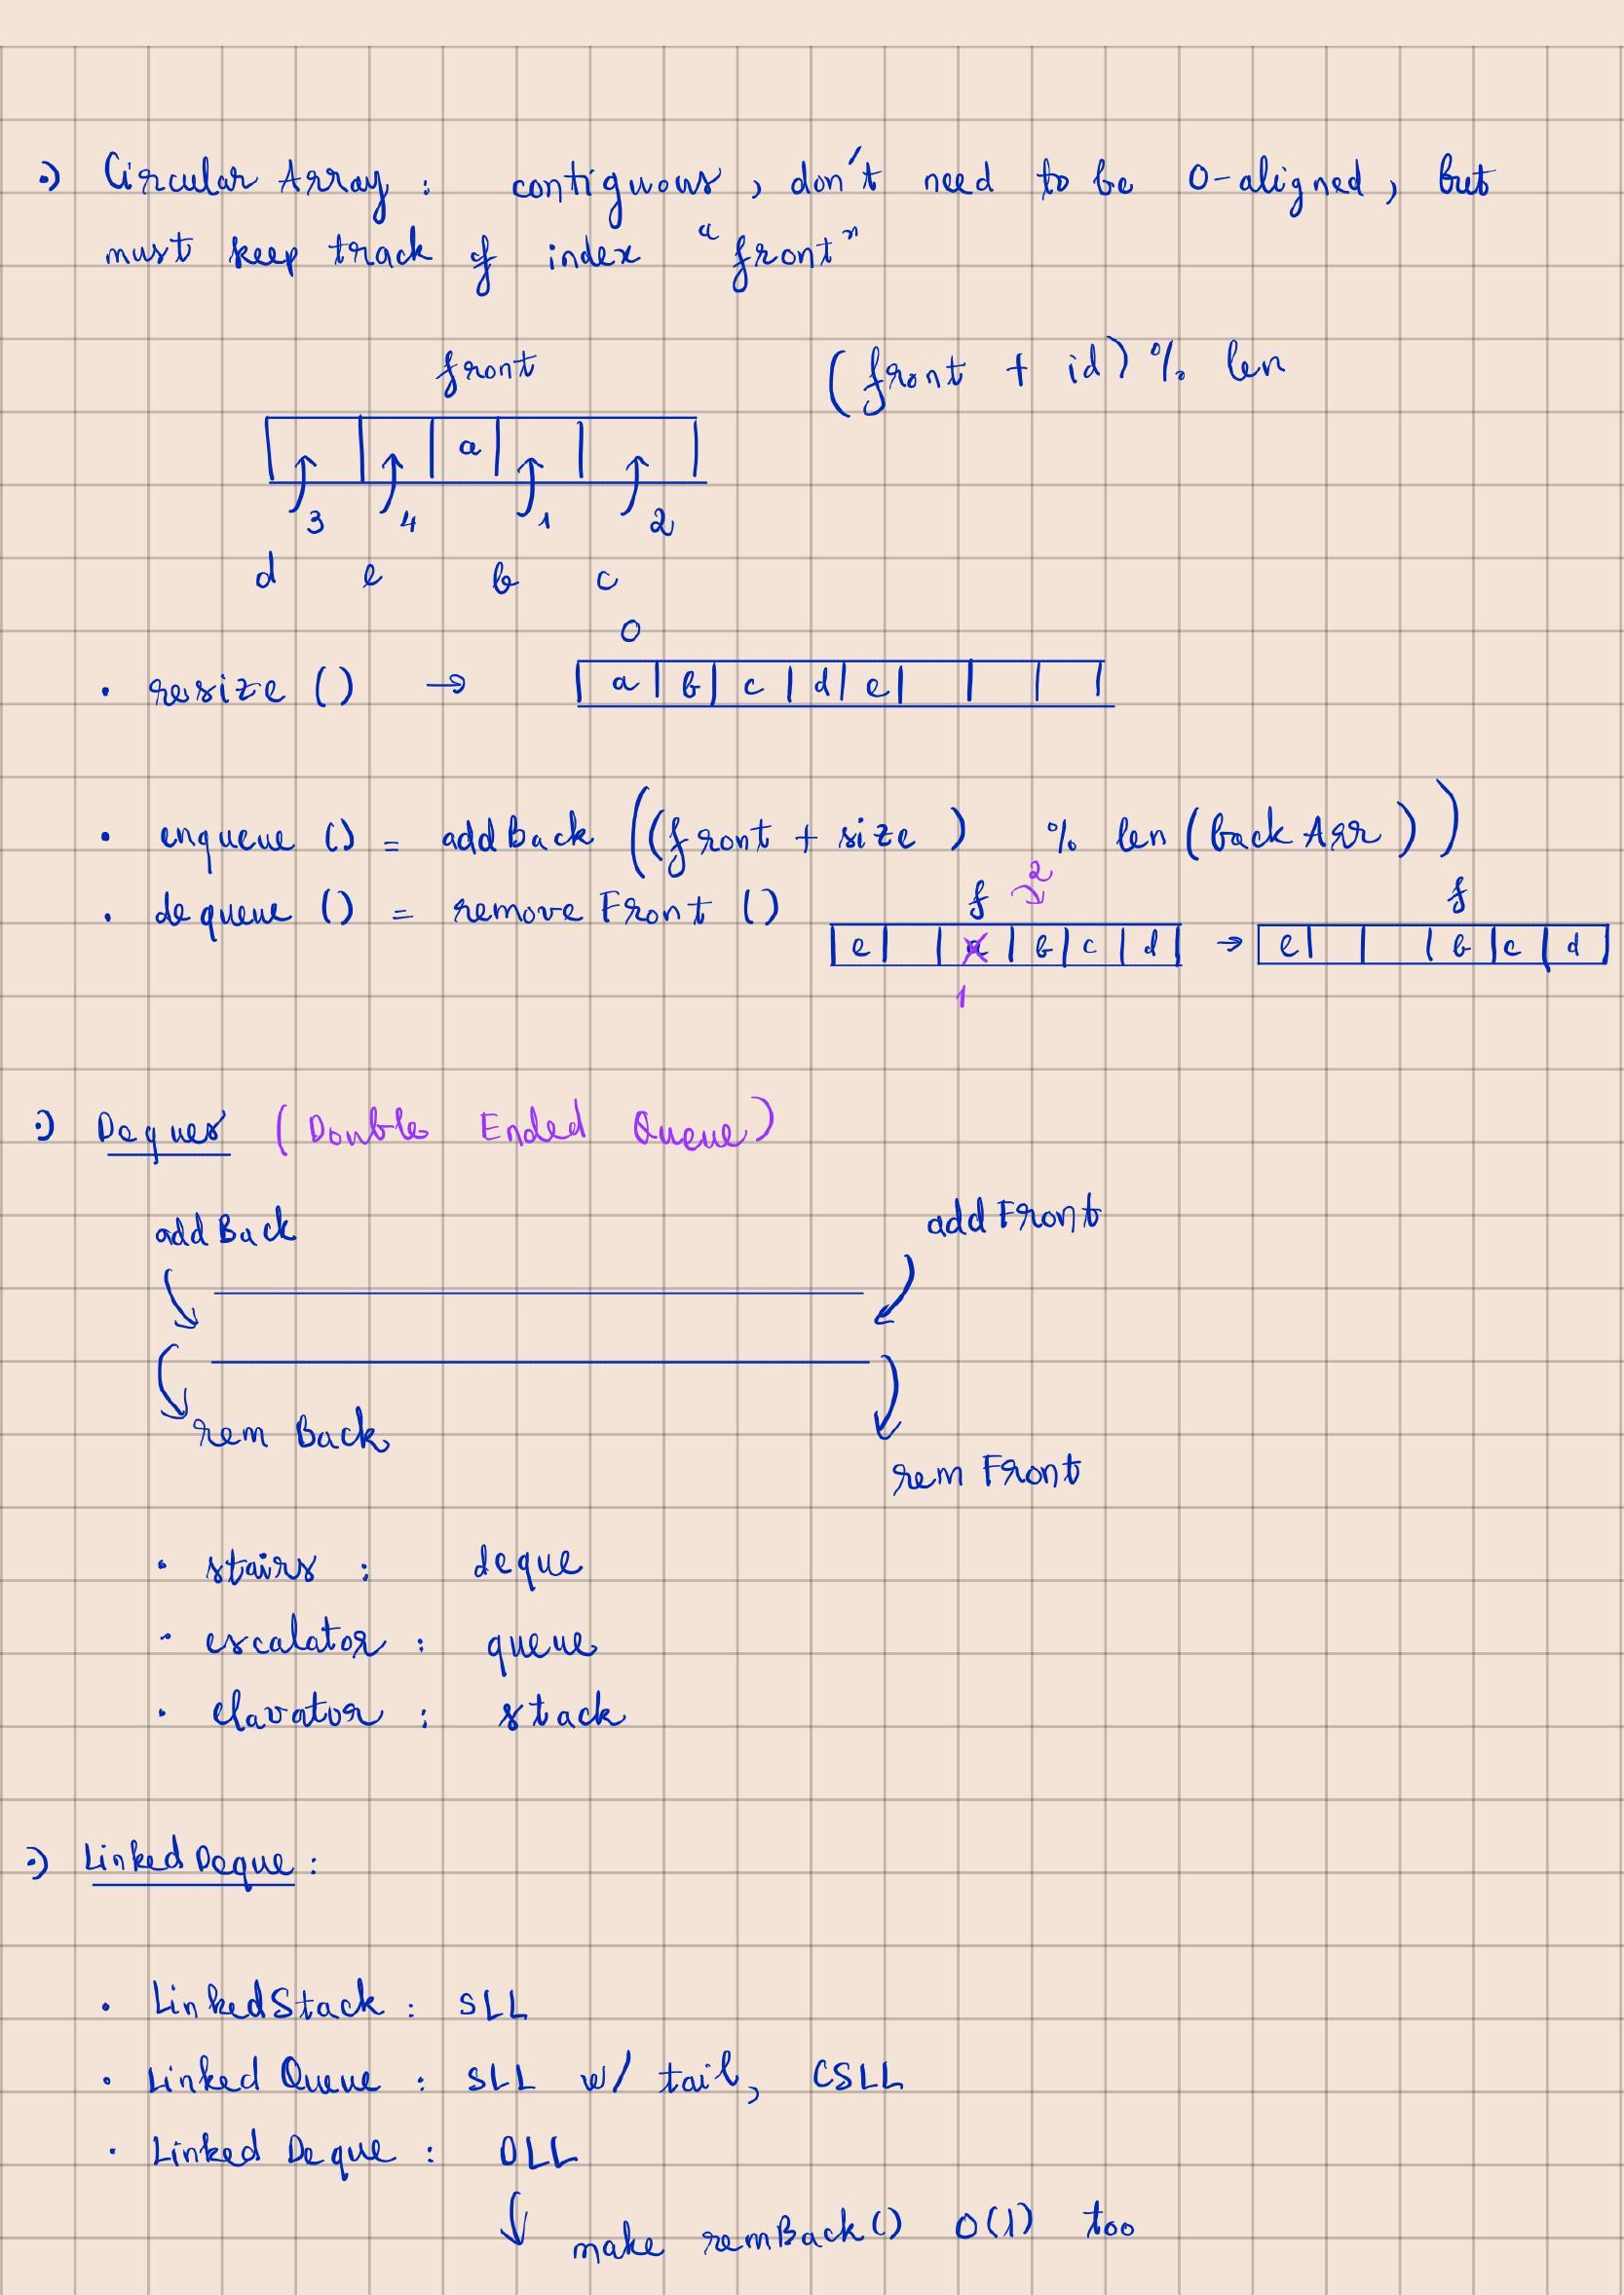 Circular Array : contiguous, don't need to be 0-aligned, but
must keep track of index "front"
front (front + id) % len
a
3 4 1 2
d e b c
0
• resize () → a b c d e
• enqueue () = addBack ((front + size) % len (backArr))
• dequeue () = removeFront ()
f 2 f
e a b c d → e b c d
1
Deques (Double Ended Queue)
addBack addFront
rem Back
rem Front
• stairs : deque
• escalator : queue
• elavator : stack
Linked Deque :
• LinkedStack : SLL
• Linked Queue : SLL w/ tail, CSLL
• Linked Deque : DLL
make remBack() O(1) too